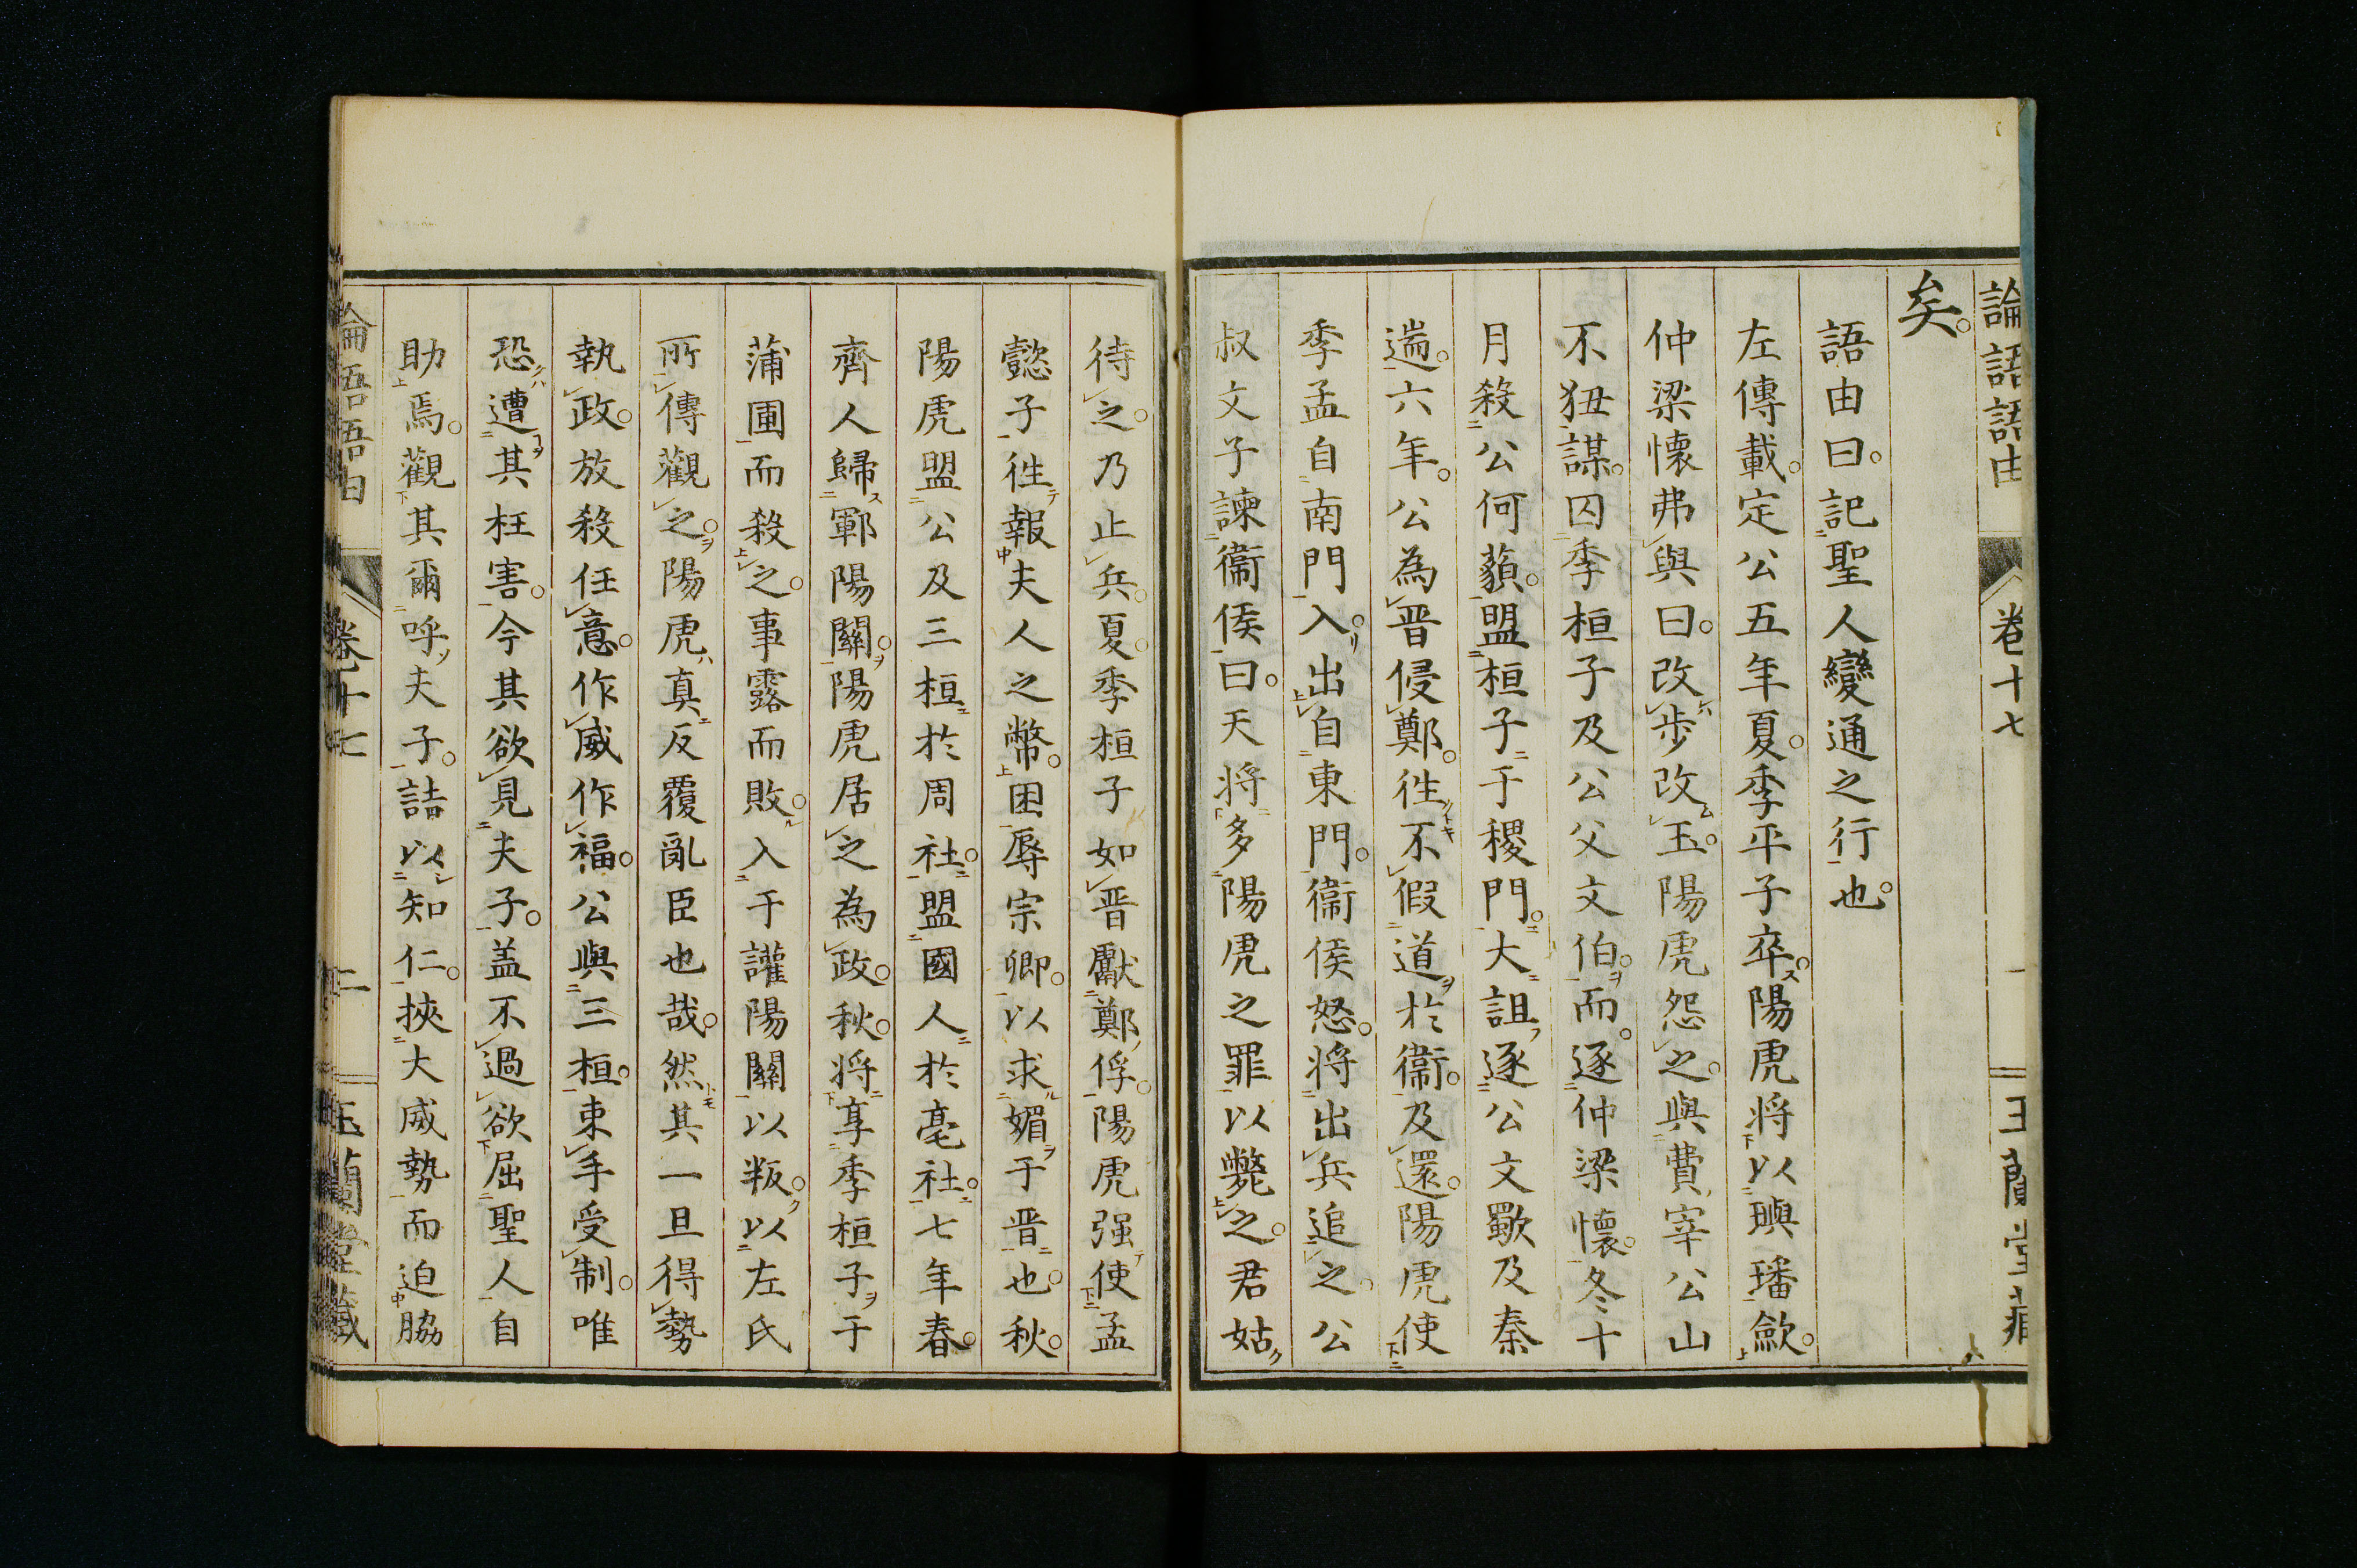 論語語由 卷十七 一 玉蘭堂藏
矣。
語由曰。記聖人變通之行也。
左傳載。定公五年夏。季平子卒。陽虎将以璵璠歛。
仲梁懷弗與曰。改步改玉。陽虎怨之。與費宰公山
不狃謀。囚季桓子及公父文伯。而逐仲梁懷。冬十
月殺公何藐。盟桓子于稷門。大詛逐公文歜及秦
遄。六年。公為晋侵鄭。徃不假道於衞。及還。陽虎使
季孟自南門入。出自東門。衞侯怒。将出兵追之。公
叔文子諫衞侯曰。天将多陽虎之罪以斃之。君姑
待之。乃止兵。夏。季桓子如晋獻鄭俘。陽虎强使孟
懿子徃報夫人之幣。困辱宗卿。以求媚于晋也。秋。
陽虎盟公及三桓於周社。盟國人於亳社。七年春。
齊人歸鄆陽關。陽虎居之為政。秋。将享季桓子于
蒲圃而殺之。事露而敗。入于讙陽關以叛。以左氏
所傳觀之。陽虎真反覆亂臣也哉。然其一旦得勢
執政。放殺任意。作威作福。公與三桓。束手受制。唯
恐遭其枉害。今其欲見夫子。盖不過欲屈聖人自
助焉。觀其爾呼夫子。詰以知仁。挾大威勢而迫脇
論語語由 卷十七 二 玉蘭堂藏